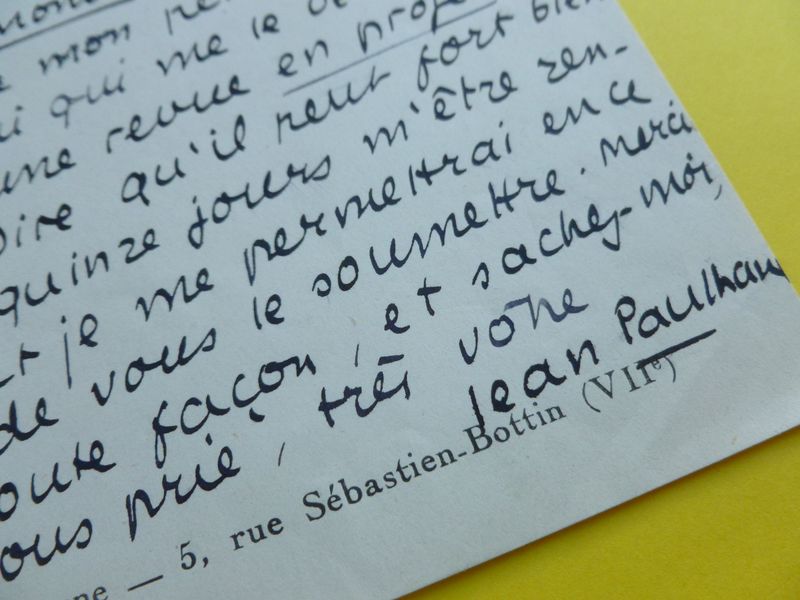 mon
qui me le
une revue en proje
qu'il peut fort bien
quinze jours m'être ren-
je me permettrai en ce
de vous le soumettre. Merci
façon, et sachez-moi,
prie, très vôtre
Jean Paulhan
5, rue Sébastien-Bottin (VIIe)